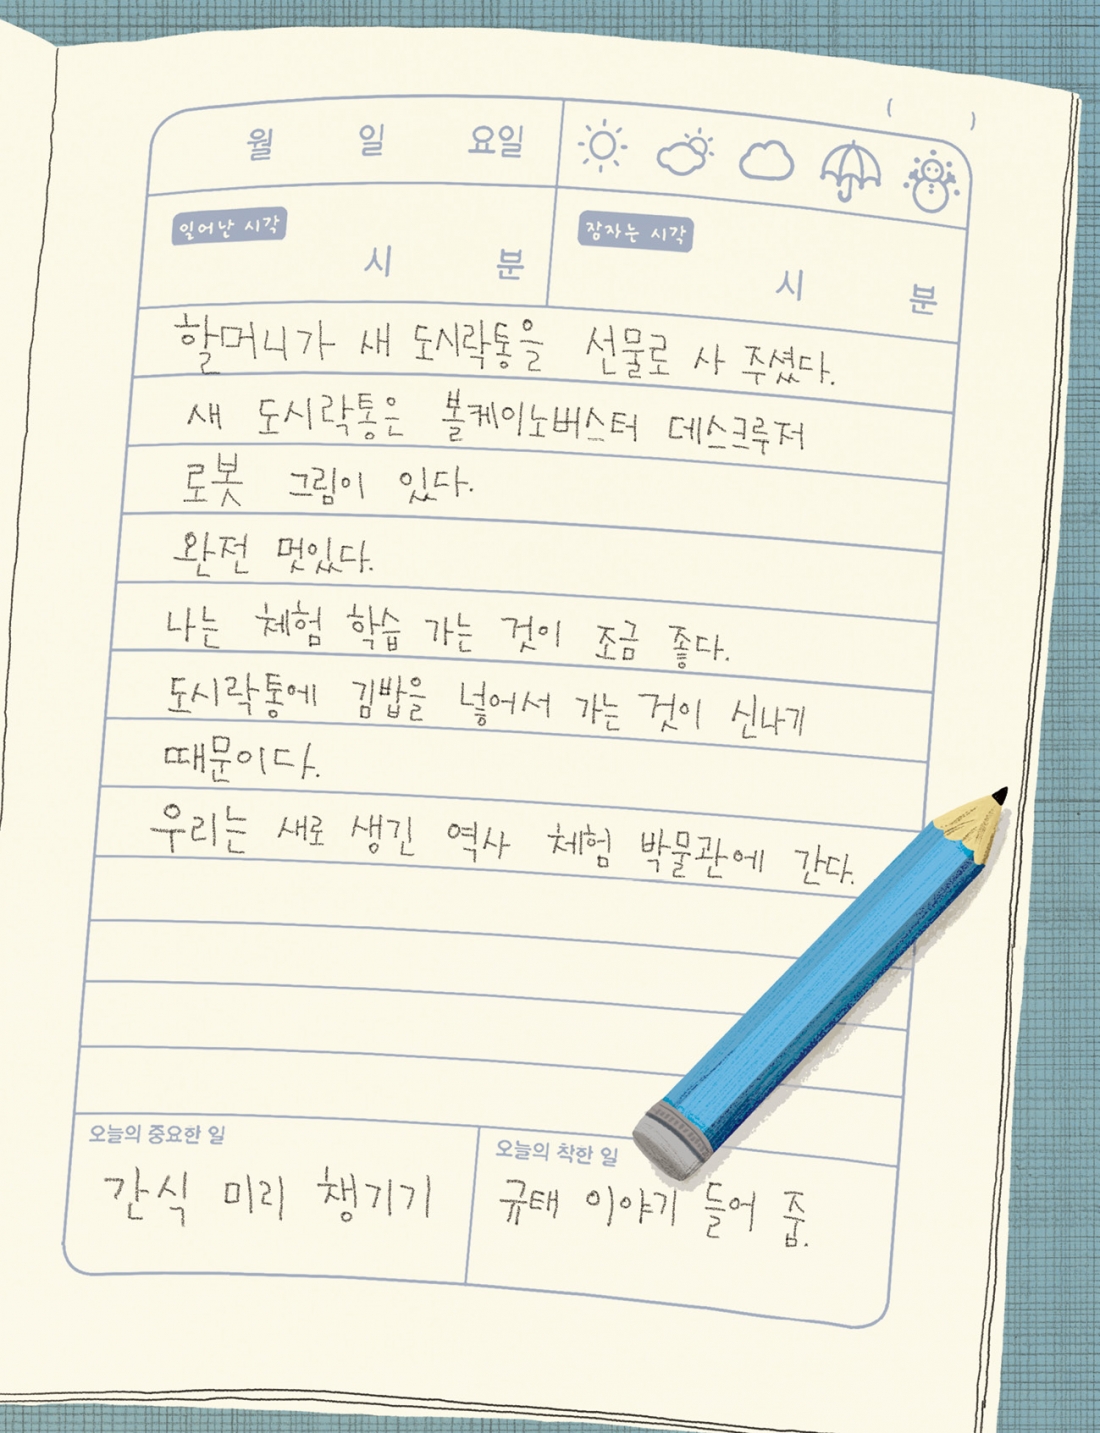 월 일 요일
( )
일어난 시각 시 분
잠자는 시각 시 분
할머니가 새 도시락통을 선물로 사 주셨다.
새 도시락통은 볼케이노버스터 데스크루저
로봇 그림이 있다.
완전 멋있다.
나는 체험 학습 가는 것이 조금 좋다.
도시락통에 김밥을 넣어서 가는 것이 신나기
때문이다.
우리는 새로 생긴 역사 체험 박물관에 간다.
오늘의 중요한 일
간식 미리 챙기기
오늘의 착한 일
규태 이야기 들어 줌.